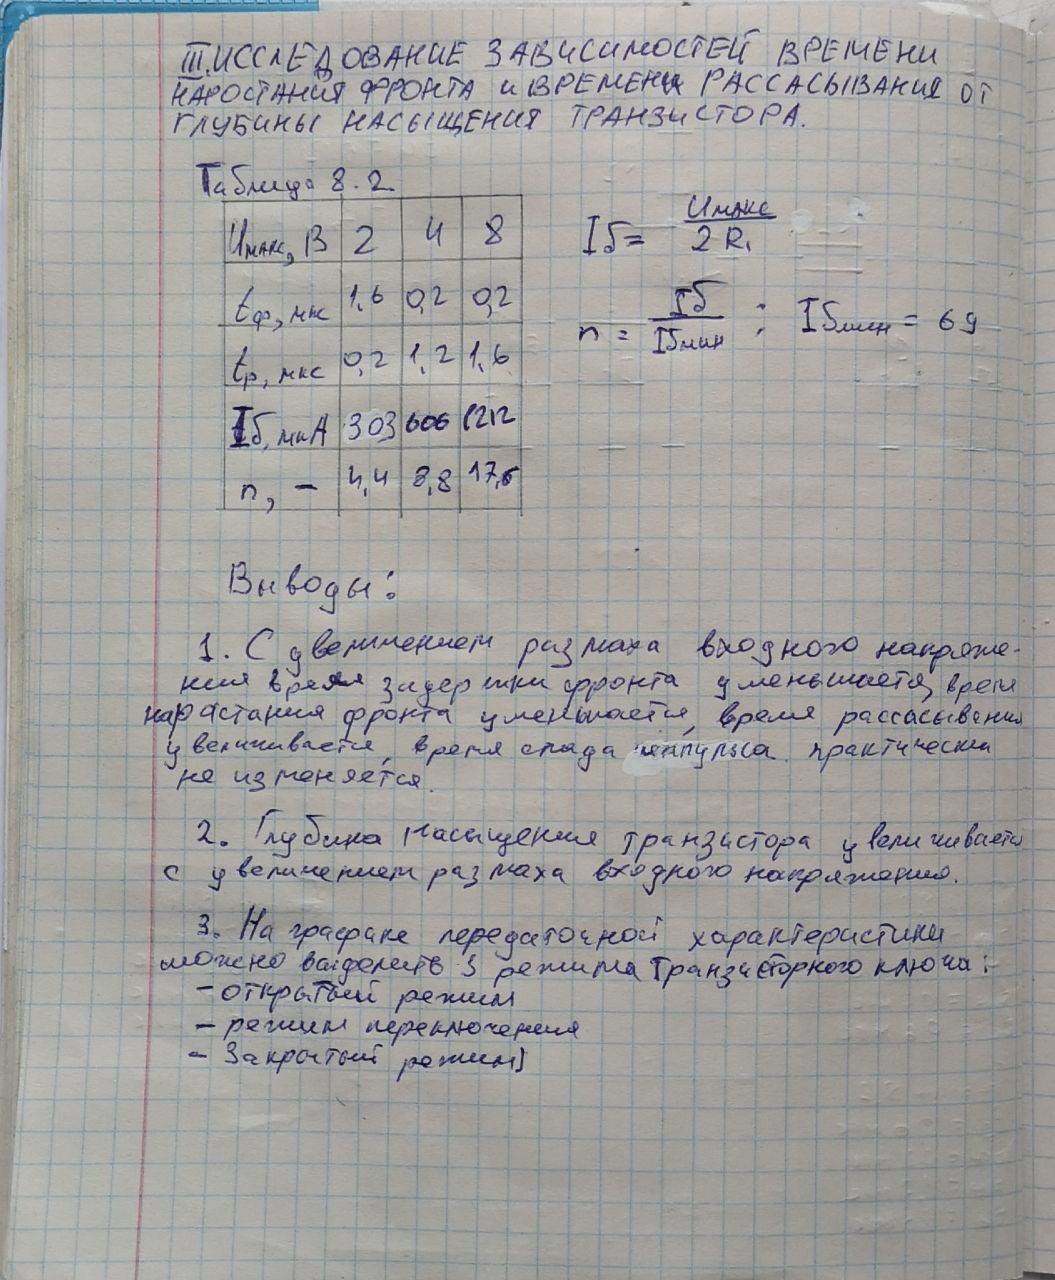 III. ИССЛЕДОВАНИЕ ЗАВИСИМОСТЕЙ ВРЕМЕНИ
НАРОСТАНИЯ ФРОНТА И ВРЕМЕНИ РАССАСЫВАНИЯ ОТ
ГЛУБИНЫ НАСЫЩЕНИЯ ТРАНЗИСТОРА.
Таблица 8.2
Uмакс, В 2 4 8
tф, мкс 1,6 0,2 0,2
tр, мкс 0,2 1,2 1,6
Iб, мкА 303 606 1212
n, – 4,4 8,8 17,6
Iб = Uмакс / 2R₁
n = Iб / Iбмин ; Iбмин = 69
Выводы:
1. С увеличением размаха входного напряже-
ния время задержки фронта уменьшается, время
нарастания фронта уменьшается, время рассасывания
увеличивается, время спада импульса практически
не изменяется.
2. Глубина насыщения транзистора увеличивается
с увеличением размаха входного напряжения.
3. На графике передаточной характеристики
можно выделить 3 режима транзисторного ключа:
- открытый режим
- режим переключения
- закрытый режим